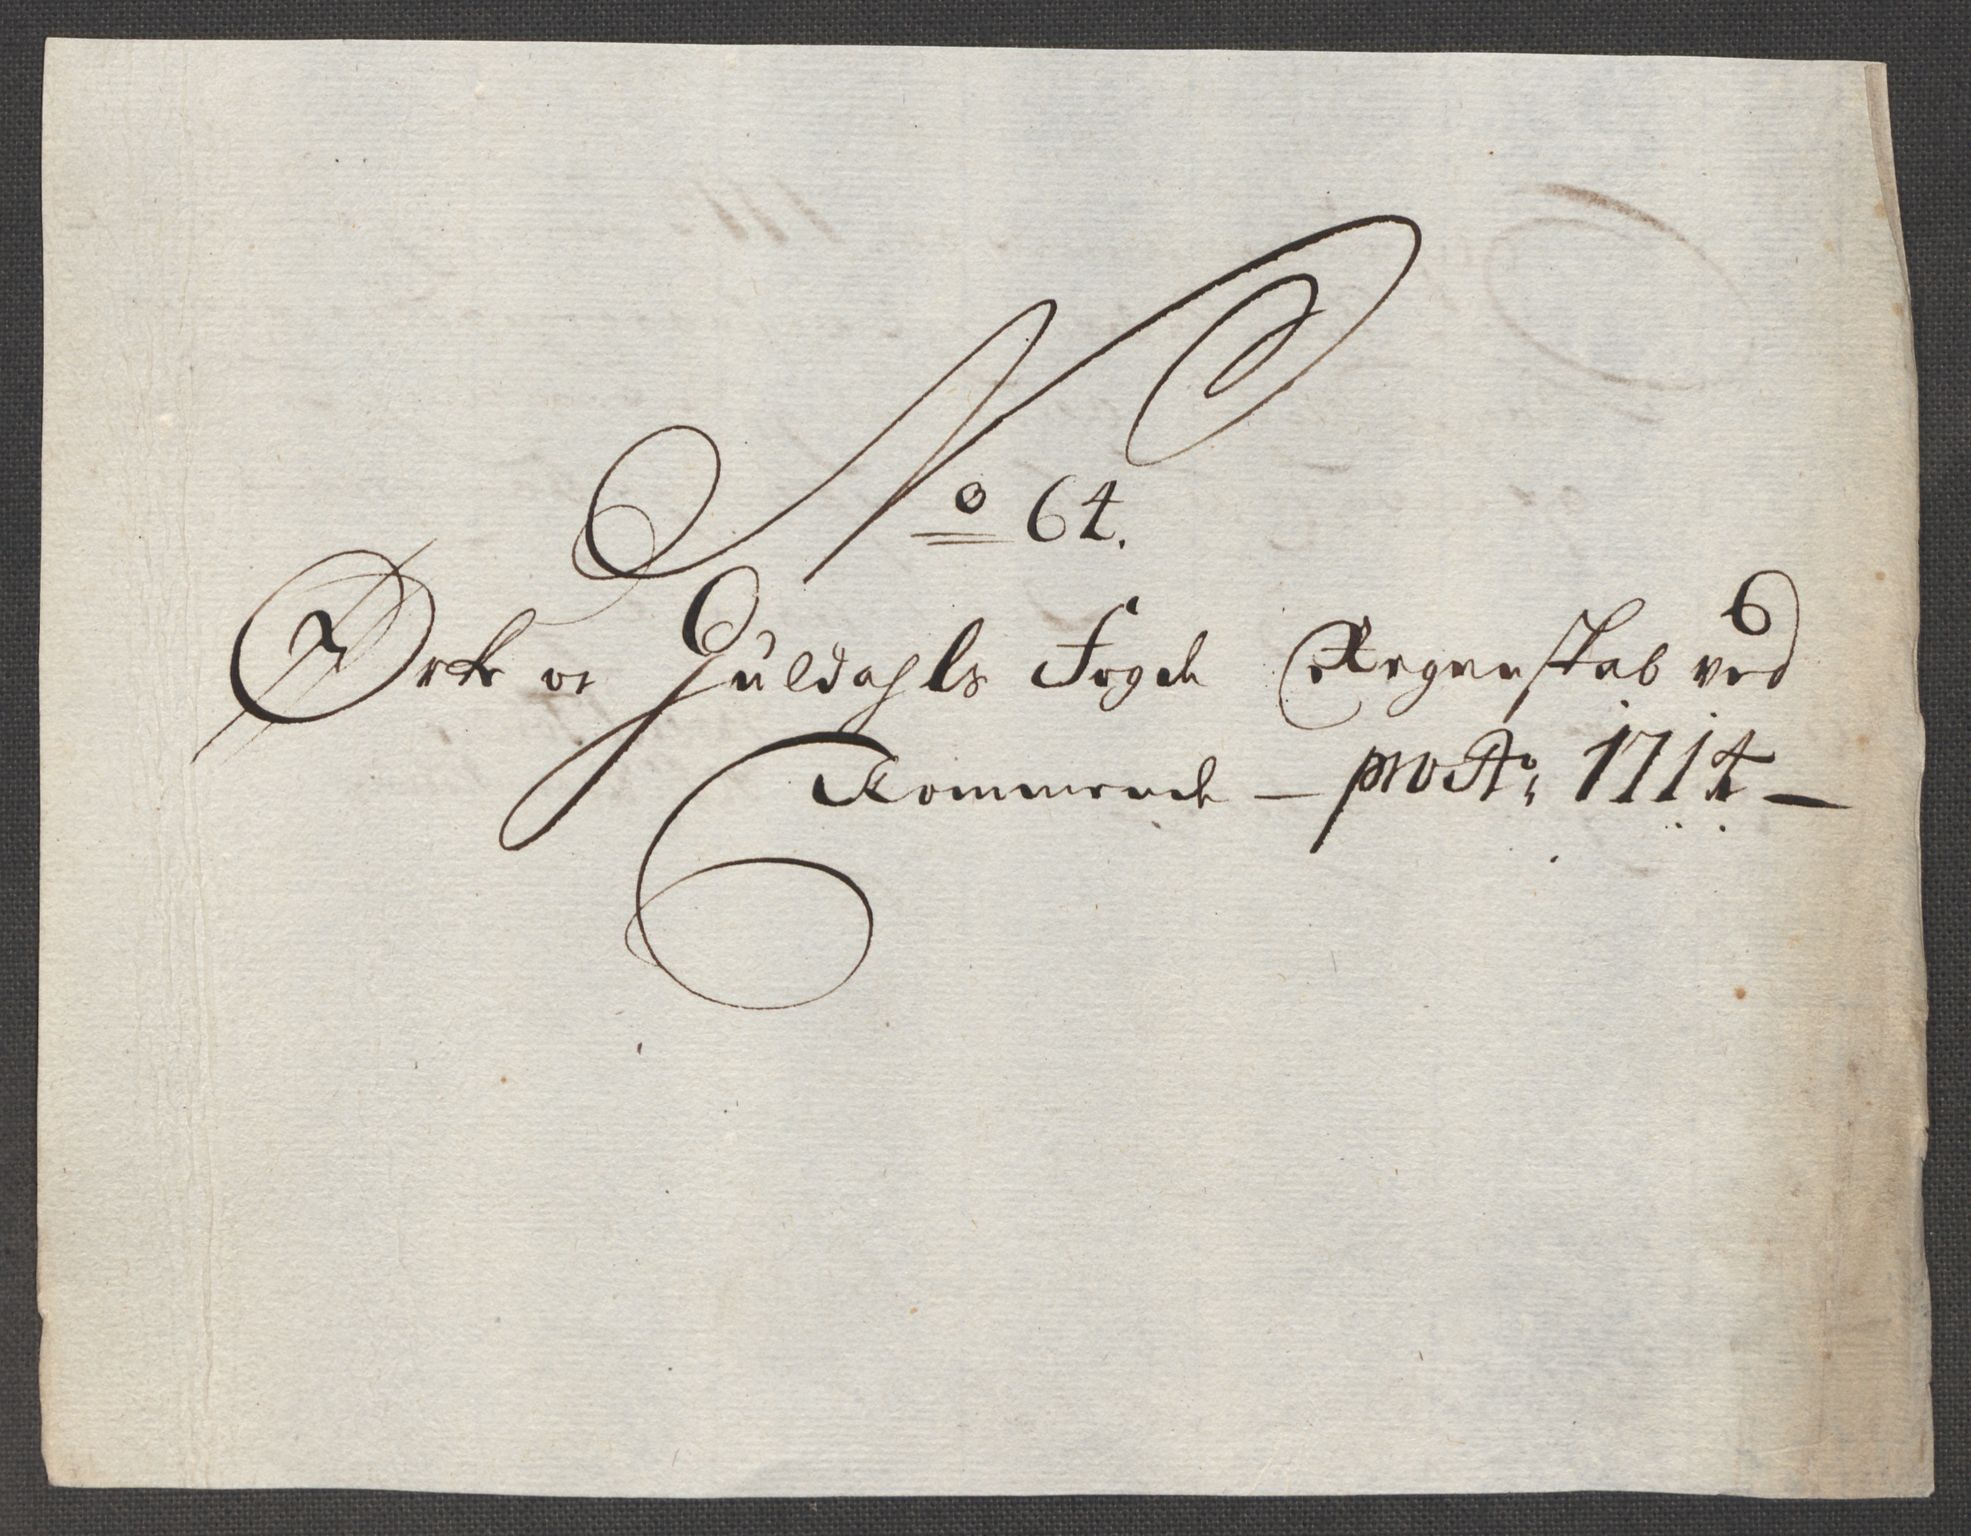 No 64.
Ork og Guldahls Fogde Regenskab ved
Kommende — pro Ao 1714 —